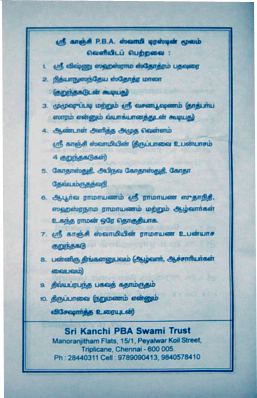 ஸ்ரீ காஞ்சி P.B.A. ஸ்வாமி டிரஸ்டின் மூலம்
வெளியிடப் பெற்றவை :
1. ஸ்ரீ விஷ்ணு ஸஹஸ்ரநாம ஸ்தோத்ரம் பதவுரை
2. நித்யாநுஸந்தேய ஸ்தோத்ர மாலா
(குறுந்தகடுடன் கூடியது)
3. முமுக்ஷுப்படி மற்றும் ஸ்ரீ வசனபூஷணம் (தாத்பர்ய
ஸாரம் என்னும் வ்யாக்யானத்துடன் கூடியது)
4. ஆண்டாள் அளித்த அமுத வெள்ளம்
ஸ்ரீ காஞ்சி ஸ்வாமியின் (திருப்பாவை உபன்யாசம்
4 குறுந்தகடுகள்)
5. கோதாஸ்துதி, அபிநவ கோதாஸ்துதி, கோதா
6. ஆபூர்வ ராமாயணம் ஸ்ரீ ராமாயண
ஸஹஸ்ரநாம ராமாயணம் மற்றும் ஆழ்வார்கள்
உகந்த ராமன் ஒரே தொகுதியாக.
7. ஸ்ரீ காஞ்சி ஸ்வாமியின் ராமாயண உபன்யாச
குறுந்தகடு
8. பன்னிரு திங்களனுபவம் (ஆழ்வார், ஆச்சாரியர்கள்
வைபவம்)
9. திவ்யப்ரபந்த பகவத் கதாம்ருதம்
10. திருப்பாவை (நறுமணம் என்னும்
விசேஷார்த்த உரையுடன்)
Sri Kanchi PBA Swami Trust
Manoranjitham Flats, 15/1, Peyalwar Koil Street,
Triplicane, Chennai - 600 005.
Ph : 28440311 Cell : 9789090413, 9840578410